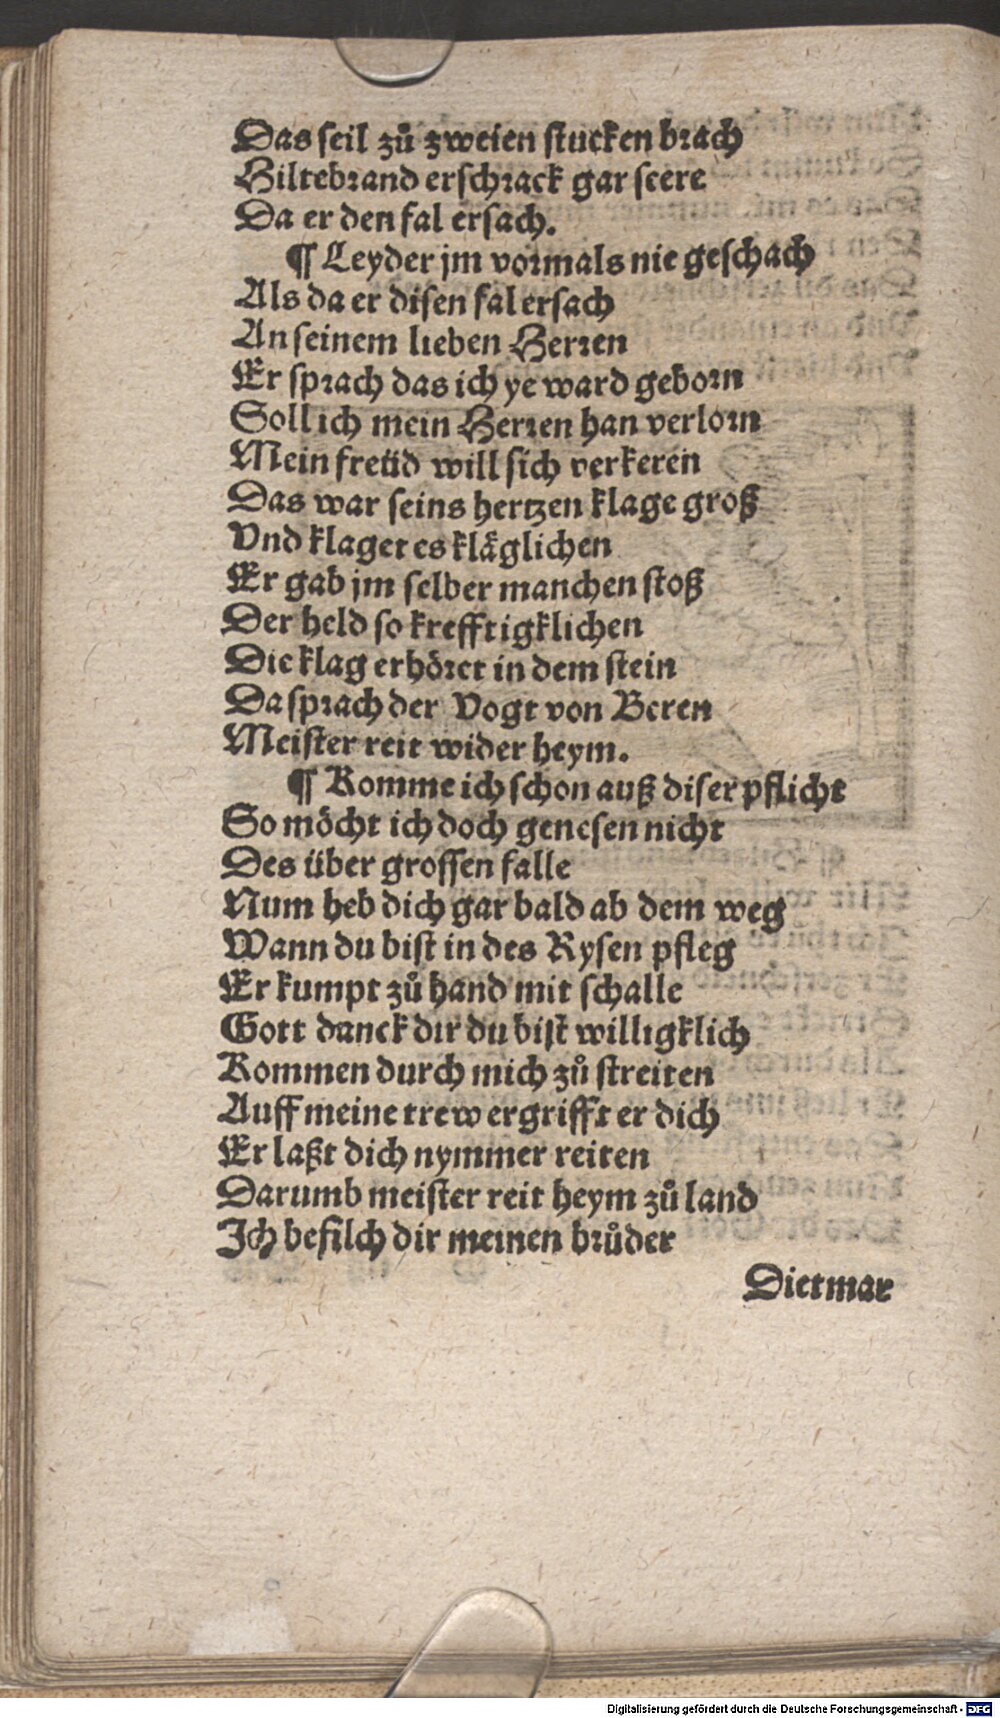 Das seil zů zweien stucken brach
Hiltebrand erschrack gar scere
Da er den fal ersach.
¶ Leyder jm vormals nie geschach
Als da er disen fal ersach
An seinem lieben Herren
Er sprach das ich ye ward geborn
Soll ich mein Herren han verlorn
Mein freüd will sich verkeren
Das war seins hertzen klage groß
Vnd klaget es kläglichen
Er gab jm selber manchen stoß
Der held so krefftigklichen
Die klag erhöret in dem stein
Da sprach der Vogt von Beren
Meister reit wider heym.
¶ Komme ich schon auß diser pflicht
So möcht ich doch genesen nicht
Des über grossen falle
Num heb dich gar bald ab dem weg
Wann du bist in des Rysen pfleg
Er kumpt zů hand mit schalle
Gott danck dir du bist willigklich
Kommen durch mich zů streiten
Auff meine trew ergrifft er dich
Er laßt dich nymmer reiten
Darumb meister reit heym zů land
Ich befilch dir meinen brůder
Dietmar
Digitalisierung gefördert durch die Deutsche Forschungsgemeinschaft - DFG